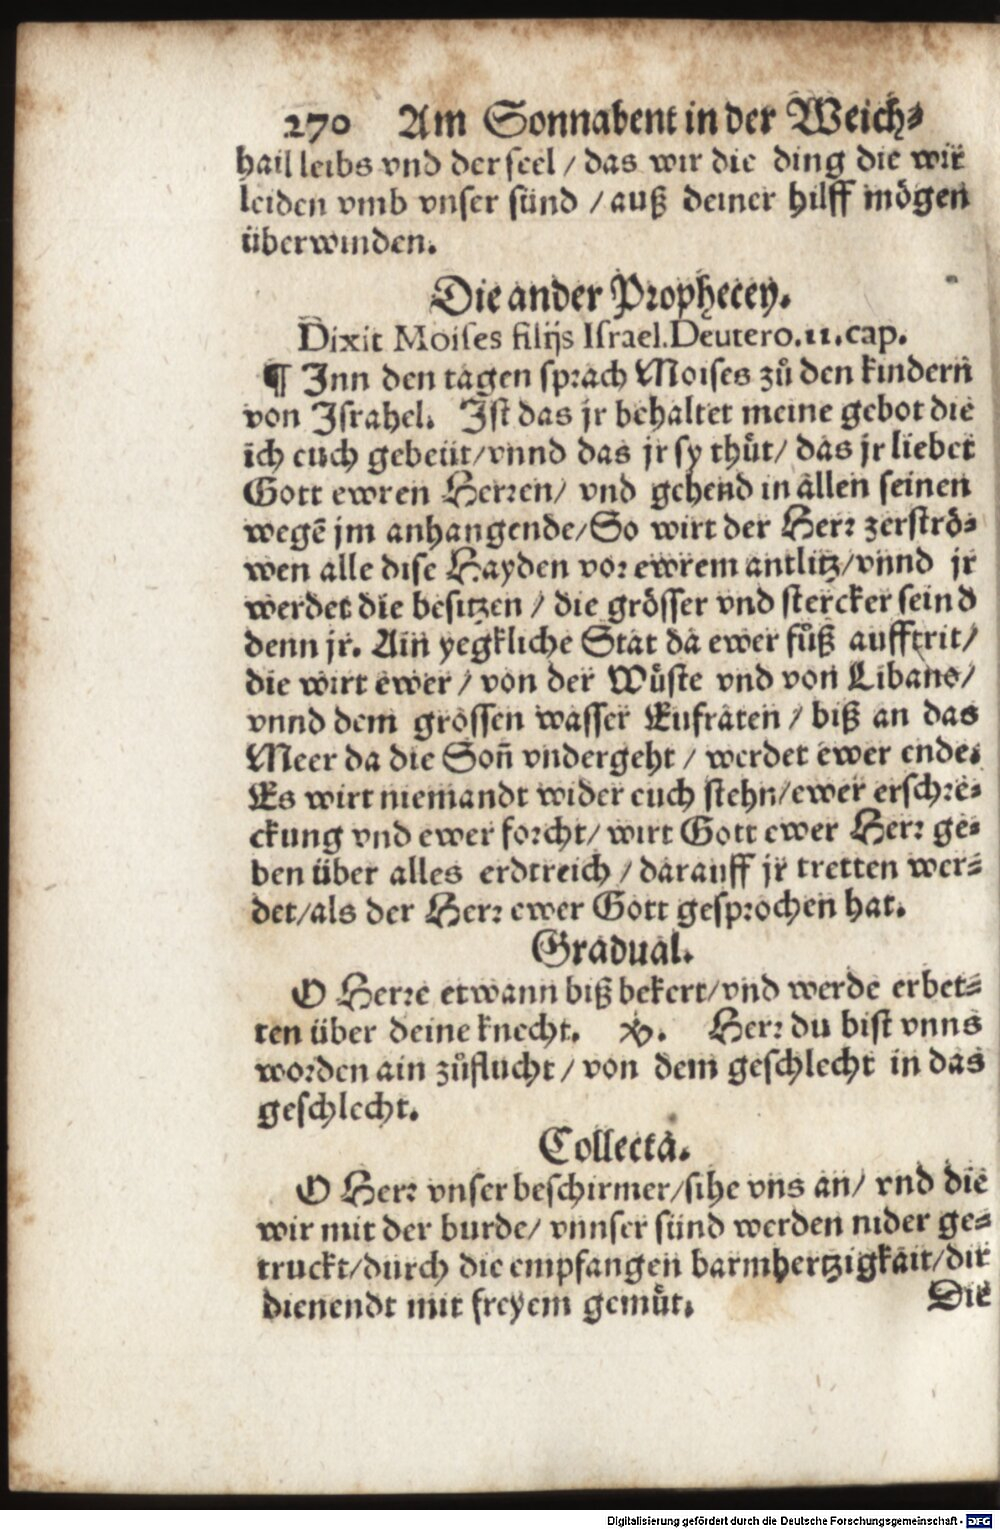 270 Am Sonnabent in der Weich⸗
hail leibs vnd der seel / das wir die ding die wir
leiden vmb vnser sünd / auß deiner hilff mögen
überwinden.
Die ander Prophecey.
Dixit Moises filijs Israel. Deutero. 11. cap.
¶ Inn den tagen sprach Moises zů den kindern
von Israhel. Ist das jr behaltet meine gebot die
ich euch gebeüt/vnnd das jr sy thůt/ das jr liebet
Gott ewren Herren/ vnd gehend in allen seinen
wegē jm anhangende/So wirt der Herr zerströ⸗
wen alle dise Hayden vor ewrem antlitz/vnnd jr
werdet die besitzen / die grösser vnd stercker seind
denn jr. Ain yegkliche Stat da ewer fůß aufftrit/
die wirt ewer / von der Wůste vnd von Libano/
vnnd dem grossen wasser Eufraten / biß an das
Meer da die Soñ vndergeht / werdet ewer ende.
Es wirt niemandt wider euch stehn/ewer erschre⸗
ckung vnd ewer forcht/ wirt Gott ewer Herr ge⸗
ben über alles erdtreich / darauff jr tretten wer⸗
det/als der Herr ewer Gott gesprochen hat.
Gradual.
O Herre etwann biß bekert/vnd werde erbet⸗
ten über deine knecht. ℣. Herr du bist vnns
worden ain zůflucht / von dem geschlecht in das
geschlecht.
Collecta.
O Herr vnser beschirmer/sihe vns an/ vnd die
wir mit der burde/ vnnser sünd werden nider ge⸗
truckt/durch die empfangen barmhertzigkait/dir
dienendt mit freyem gemůt.
Die
Digitalisierung gefördert durch die Deutsche Forschungsgemeinschaft - DFG